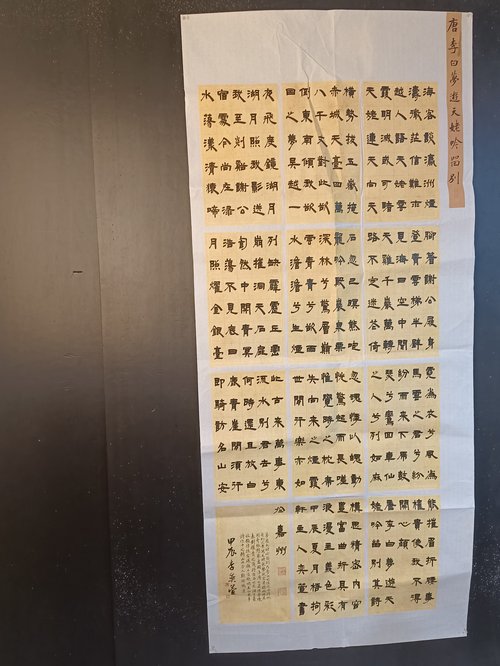 唐李白夢遊天姥吟留别
海客談瀛洲煙
濤微茫信難求
越人語天姥雲
霞明滅或可睹
天姥連天向天
橫勢拔五嶽掩
赤城天臺四萬
八千丈對此欲
倒東南傾我欲
因之夢吳越一
夜飛度鏡湖月
湖月照我影送
我至剡谿謝公
宿處今尚在淥
水蕩漾清猿啼
腳著謝公屐身
登青雲梯半壁
見海日空中聞
天雞千巖萬轉
路不定迷花倚
石忽已暝熊咆
龍吟殷巖泉慄
深林兮驚層巔
雲青青兮欲雨
水澹澹兮生煙
列缺霹靂丘巒
崩摧洞天石扉
訇然中開青冥
浩蕩不見底日
月照燿金銀臺
霓為衣兮風為
馬雲之君兮紛
紛而來下虎鼓
瑟兮鸞回車仙
之人兮列如麻
忽魂悸以魄動
怳驚起而長嗟
惟覺時之枕席
失向來之煙霞
世間行樂亦如
此古來萬事東
流水別君去兮
何時還且放白
鹿青崖間須行
即騎訪名山安
能摧眉折腰事
權貴使我不得
開心顏
唐李白夢遊天
姥吟留別其詩
構思精密內容
豐富曲折具有
浪漫主義色彩
甲辰夏月梧桐
軒主人奕萱書
於嘉州
甲辰李奕萱